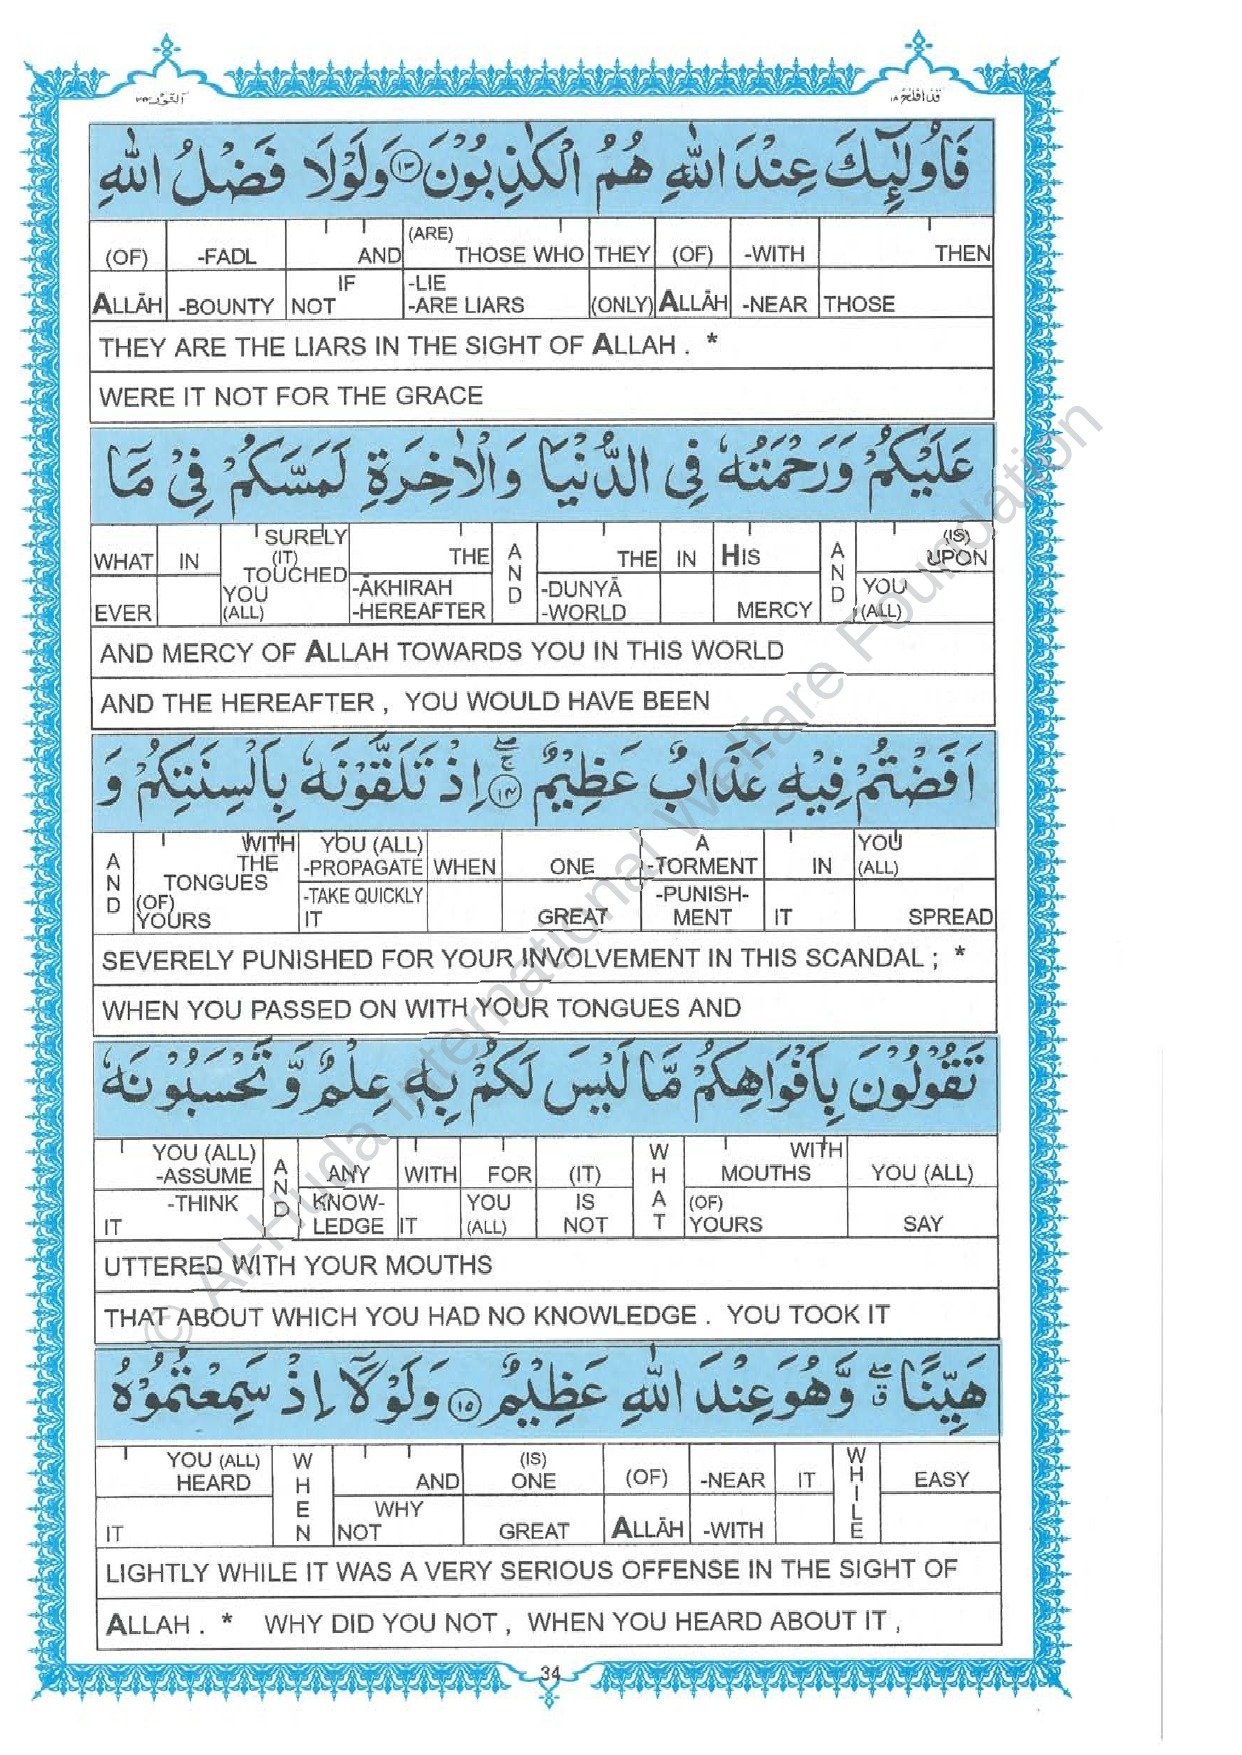 قد افلح ١٨
النور ٢٤
فَاُولٰٓئِكَ عِنْدَ اللّٰهِ هُمُ الْكٰذِبُوْنَ ١٣ وَلَوْلَا فَضْلُ اللّٰهِ
(OF) -FADL AND (ARE) THOSE WHO THEY (OF) -WITH THEN
ALLĀH -BOUNTY IF NOT -LIE -ARE LIARS (ONLY) ALLĀH -NEAR THOSE
THEY ARE THE LIARS IN THE SIGHT OF ALLAH . *
WERE IT NOT FOR THE GRACE
عَلَيْكُمْ وَرَحْمَتُهٗ فِى الدُّنْيَا وَالْاٰخِرَةِ لَمَسَّكُمْ فِىْ مَاۤ
WHAT IN SURELY (IT) TOUCHED THE AND THE IN HIS AND (IS) UPON
EVER YOU (ALL) -ĀKHIRAH -HEREAFTER -DUNYĀ -WORLD MERCY YOU (ALL)
AND MERCY OF ALLAH TOWARDS YOU IN THIS WORLD
AND THE HEREAFTER , YOU WOULD HAVE BEEN
اَفَضْتُمْ فِيْهِ عَذَابٌ عَظِيْمٌ ١٤ اِذْ تَلَقَّوْنَهٗ بِاَلْسِنَتِكُمْ وَ
AND WITH THE TONGUES YOU (ALL) -PROPAGATE WHEN ONE A -TORMENT IN YOU (ALL)
(OF) YOURS -TAKE QUICKLY IT GREAT -PUNISH-MENT IT SPREAD
SEVERELY PUNISHED FOR YOUR INVOLVEMENT IN THIS SCANDAL ; *
WHEN YOU PASSED ON WITH YOUR TONGUES AND
تَقُوْلُوْنَ بِاَفْوَاهِكُمْ مَّا لَيْسَ لَكُمْ بِهٖ عِلْمٌ وَّ تَحْسَبُوْنَهٗ
YOU (ALL) -ASSUME AND ANY WITH FOR (IT) WHAT WITH MOUTHS YOU (ALL)
-THINK IT KNOW-LEDGE IT YOU (ALL) IS NOT (OF) YOURS SAY
UTTERED WITH YOUR MOUTHS
THAT ABOUT WHICH YOU HAD NO KNOWLEDGE . YOU TOOK IT
هَيِّنًا ۖق وَّهُوَ عِنْدَ اللّٰهِ عَظِيْمٌ ١٥ وَلَوْلَاۤ اِذْ سَمِعْتُمُوْهُ
YOU (ALL) HEARD WHEN AND (IS) ONE (OF) -NEAR IT WHILE EASY
IT WHY NOT GREAT ALLĀH -WITH
LIGHTLY WHILE IT WAS A VERY SERIOUS OFFENSE IN THE SIGHT OF
ALLAH . * WHY DID YOU NOT , WHEN YOU HEARD ABOUT IT ,
34
© Al-Huda International Welfare Foundation